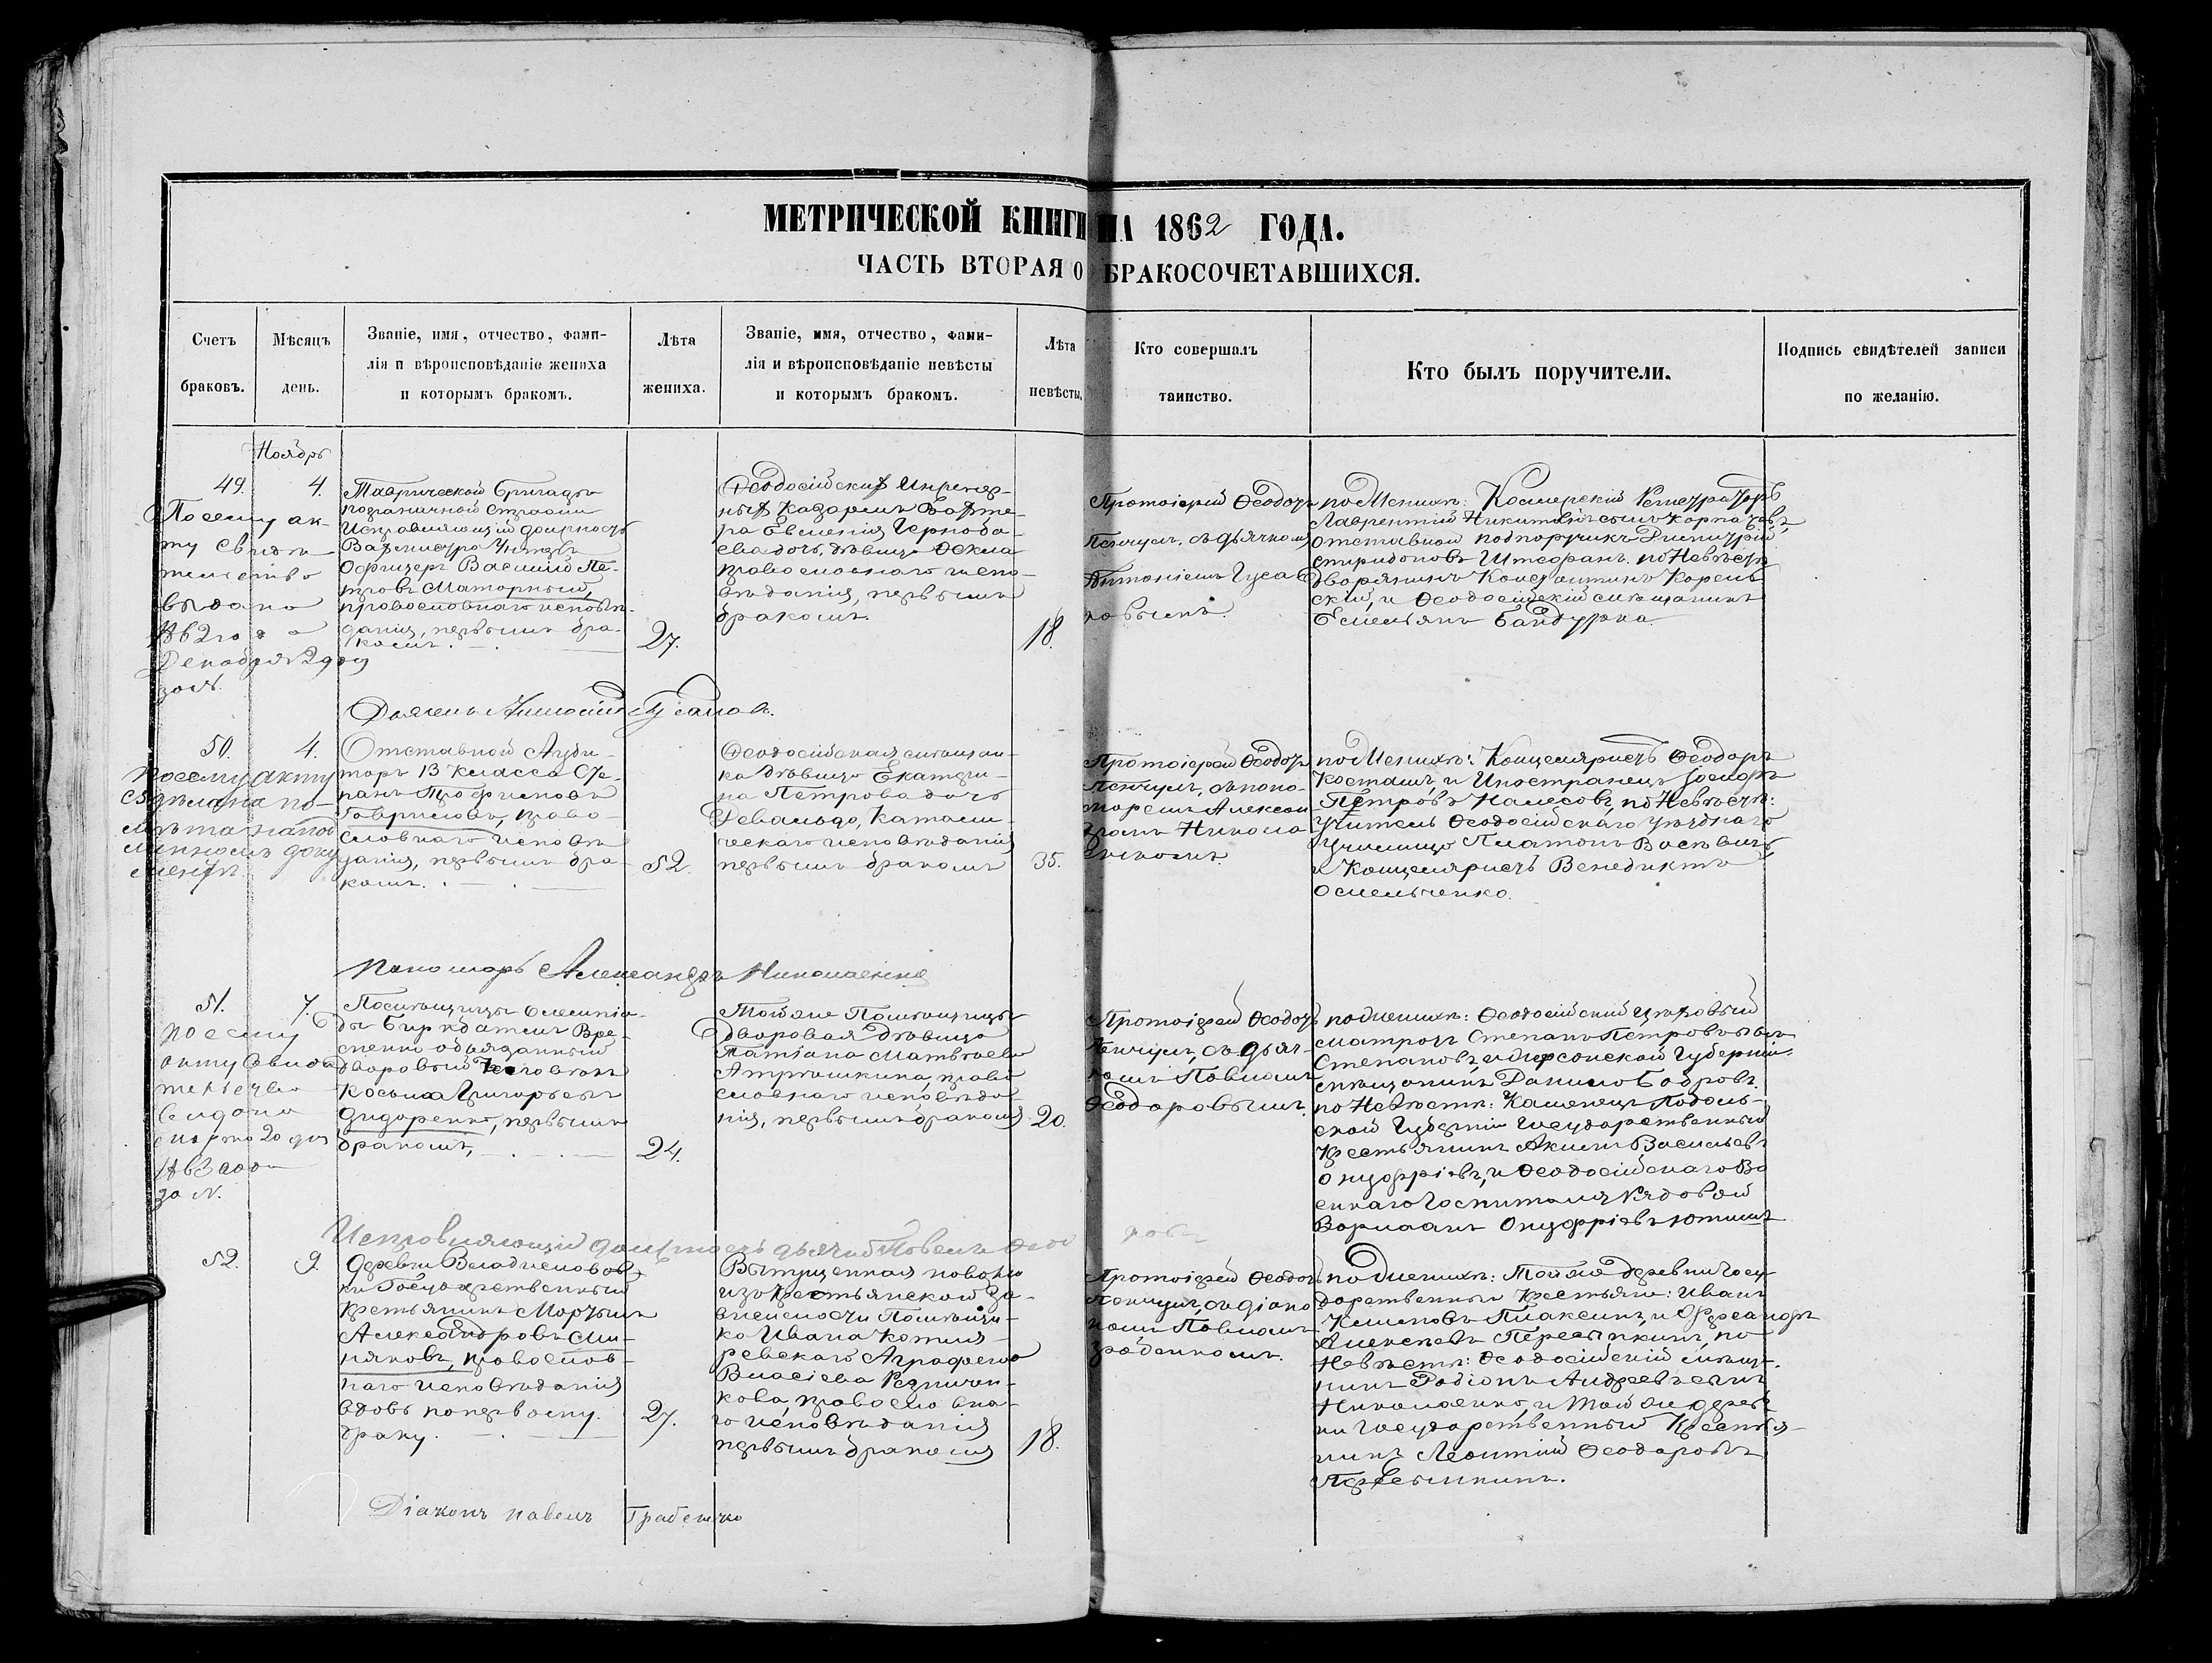 МЕТРИЧЕСКОЙ КНИГИ НА 1862 ГОДА.
ЧАСТЬ ВТОРАЯ О БРАКОСОЧЕТАВШИХСЯ.
Счетъ браковъ.
Мѣсяцъ день.
Званіе, имя, отчество, фами-
лія и вѣроисповѣданіе жениха
и которымъ бракомъ.
Лѣта жениха.
Званіе, имя, отчество, фами-
лія и вѣроисповѣданіе невѣсты
и которымъ бракомъ.
Лѣта невѣсты.
Кто совершалъ таинство.
Кто былъ поручители.
Подпись свидѣтелей записи
по желанію.
Ноябрь
49.
4.
По сему ак-
ту свидѣ-
тельство
выдано
1862 года
Декабря 29 дня
за №.
Таврической бригады
пограничной стражи
Исправляющій должность
Вахмистра Унтеръ
Офицеръ Василій Пе-
тровъ Маторный,
православнаго исповѣ-
данія, первымъ бра-
комъ.
27.
Ѳеодосійскихъ
ныхъ казармъ Вахте-
ра Евгенія Черноба-
ева дочь, дѣвица Ѳекла
православнаго испо-
вѣданія, первымъ
бракомъ.
18.
Протоіерей Ѳеодоръ
съ дьячкомъ
Антоніемъ Гуса-
ковымъ.
по Женихѣ: Коллежскій Регистраторъ
Лаврентій Никитинъ сынъ
отставной подпоручикъ Димитрій
Спиридоновъ по Невѣстѣ
дворянинъ Константинъ Корень-
скій, и Ѳеодосійскій мѣщанинъ
Емельянъ Бандурка.
Дьячекъ Антоній Гусаковъ.
50.
4.
По сему акту
сдѣлана по-
мѣта на под
линномъ доку
ментѣ.
Отставной Ауди-
торъ 13 класса Сте-
панъ Трофимовъ
Гавриловъ, право-
славнаго исповѣ
данія, первымъ бра-
комъ.
52.
Ѳеодосійская мѣщан-
ка дѣвица Екатери-
на Петрова дочь
Девальдо, Католи-
ческаго исповѣданія
первымъ бракомъ
35.
Протоіерей Ѳеодоръ
съ поно-
маремъ Алексан
дромъ Никола
енкомъ
по Женихѣ: Канцеляристъ Ѳеодоръ
Косташъ, и Иностранецъ
Петровъ по Невѣстѣ:
Учитель Ѳеодосійскаго уѣзднаго
Училища Платонъ
и Канцеляристъ Венедиктъ
Омельченко.
Пономарь Александръ Николаенко
51.
7.
По сему
акту Свидѣ
тельство
выдано
Марта 20 дня
1863 года
за №.
Помѣщицы Олимпіа-
ды Временно обязанный
дворовый человѣкъ
Косьма Григорьевъ
Сидоренко, первымъ
бракомъ,
24.
Той же Помѣщицы
дворовая дѣвица
Татіана Матвѣева
Атрошкина, право
славнаго исповѣда-
нія, первымъ бракомъ
20.
Протоіерей Ѳеодоръ
съ дьяч-
комъ Павломъ
Ѳеодоровымъ.
по женихѣ: Ѳеодосійскій цеховый
матросъ Степанъ Петровъ сынъ
Степановъ, и Херсонской Губерніи
мѣщанинъ Данило Бобровъ.
по Невѣстѣ: Каменецъ Подоль-
ской Губерніи Государственный
крестьянинъ Акимъ Васильевъ
Онуфріевъ, и Ѳеодосійскаго Во
еннаго Госпиталя Рядовой
Варлаамъ Онуфріевъ
Исправляющій должность дьячка Павелъ Ѳеодоровъ
52.
9.
Деревни Владиславов-
ки Государственный
Крестьянинъ
Александровъ
православ-
наго исповѣданія
вдовъ по первому
браку.
27.
Выпущенная на волю
изъ крестьянской за-
висимости Помѣщи-
ка Ивана Котля-
ревскаго Аграфена
Власіева Резничен-
кова, православна-
го исповѣданія
первымъ бракомъ
18.
Протоіерей Ѳеодоръ
съ діако
номъ Павломъ
Грабенкомъ.
по Женихѣ: Той же деревни Госу-
дарственные крестьяне: Иванъ
Плаксинъ, и
Алексѣевъ по
Невѣстѣ: Ѳеодосійскій мѣща-
нинъ Родіонъ Андреевъ сынъ
Николаенко, и той же дерев-
ни Государственный Крестья-
нинъ Леонтій Ѳеодоровъ
Діаконъ Павелъ Грабенко